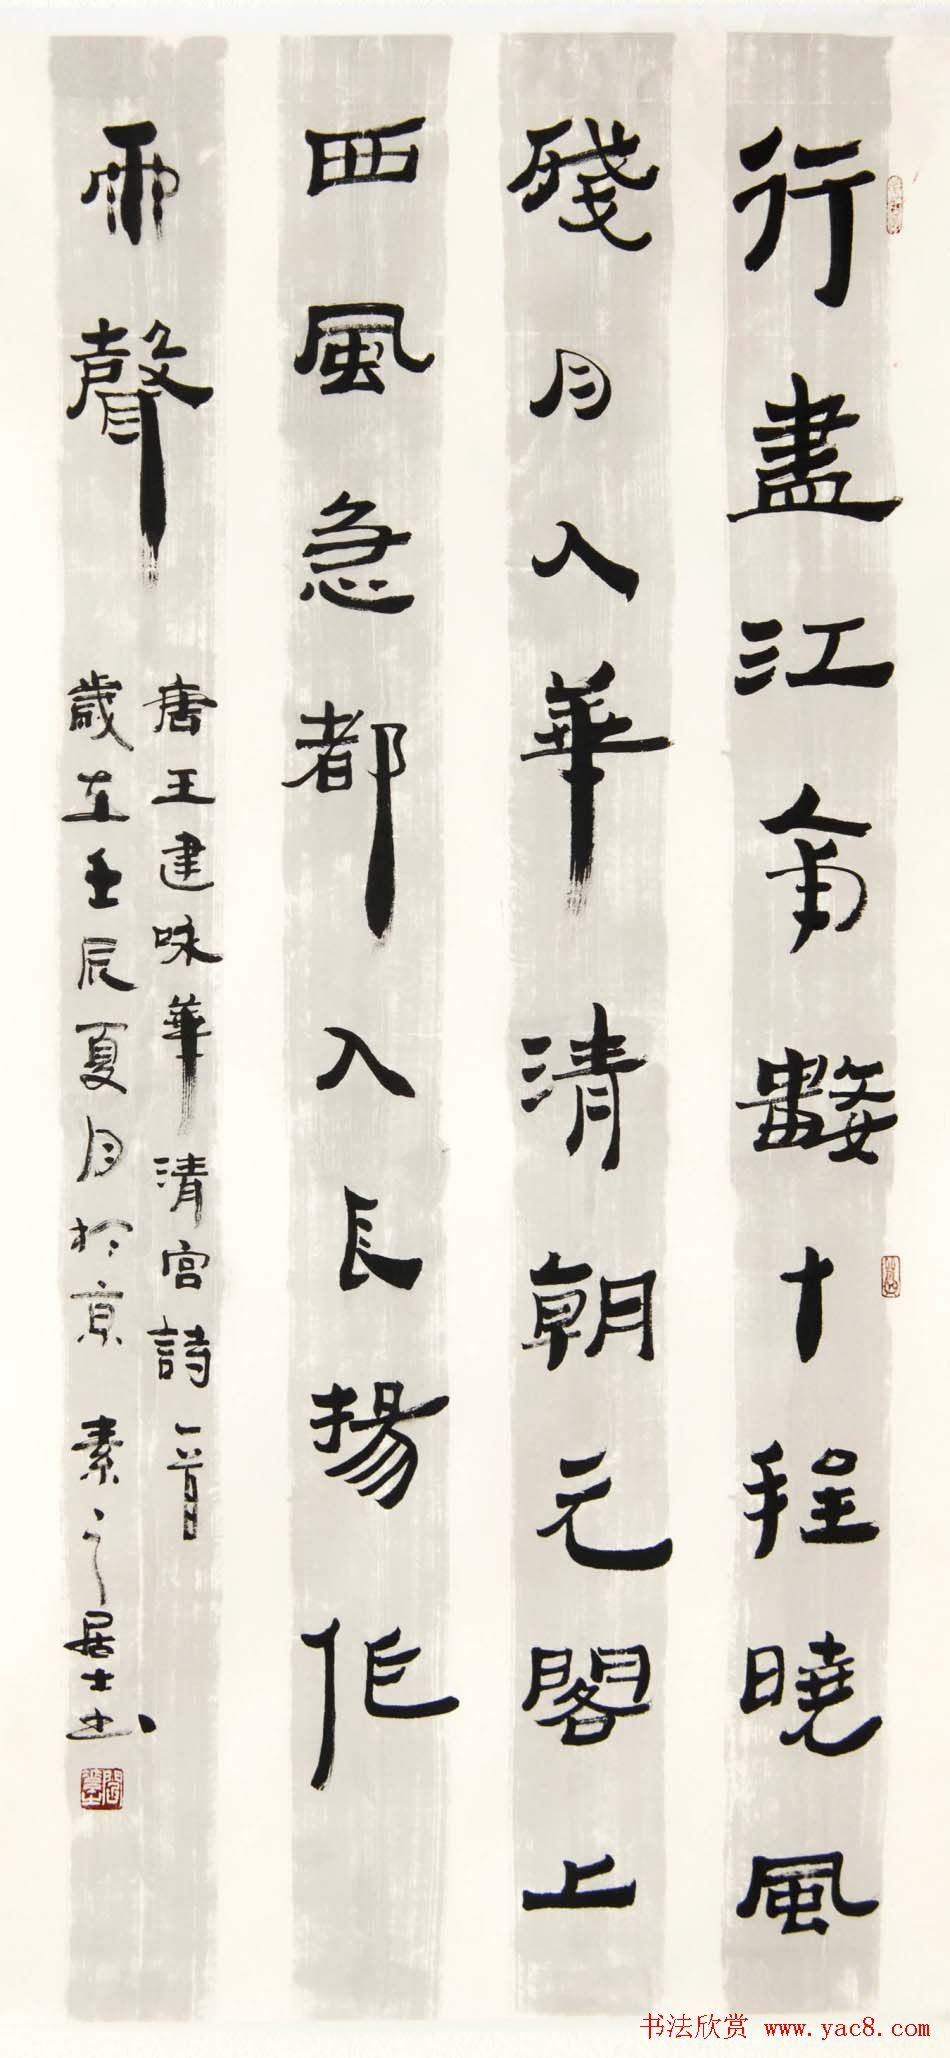 行盡江南數十程曉風
殘月入華清朝元閣上
西風急都入長揚作
雨聲
唐王建咏華清宮詩一首
歲在壬辰夏月於京 素之居士书
书法欣赏 www.yac8.com